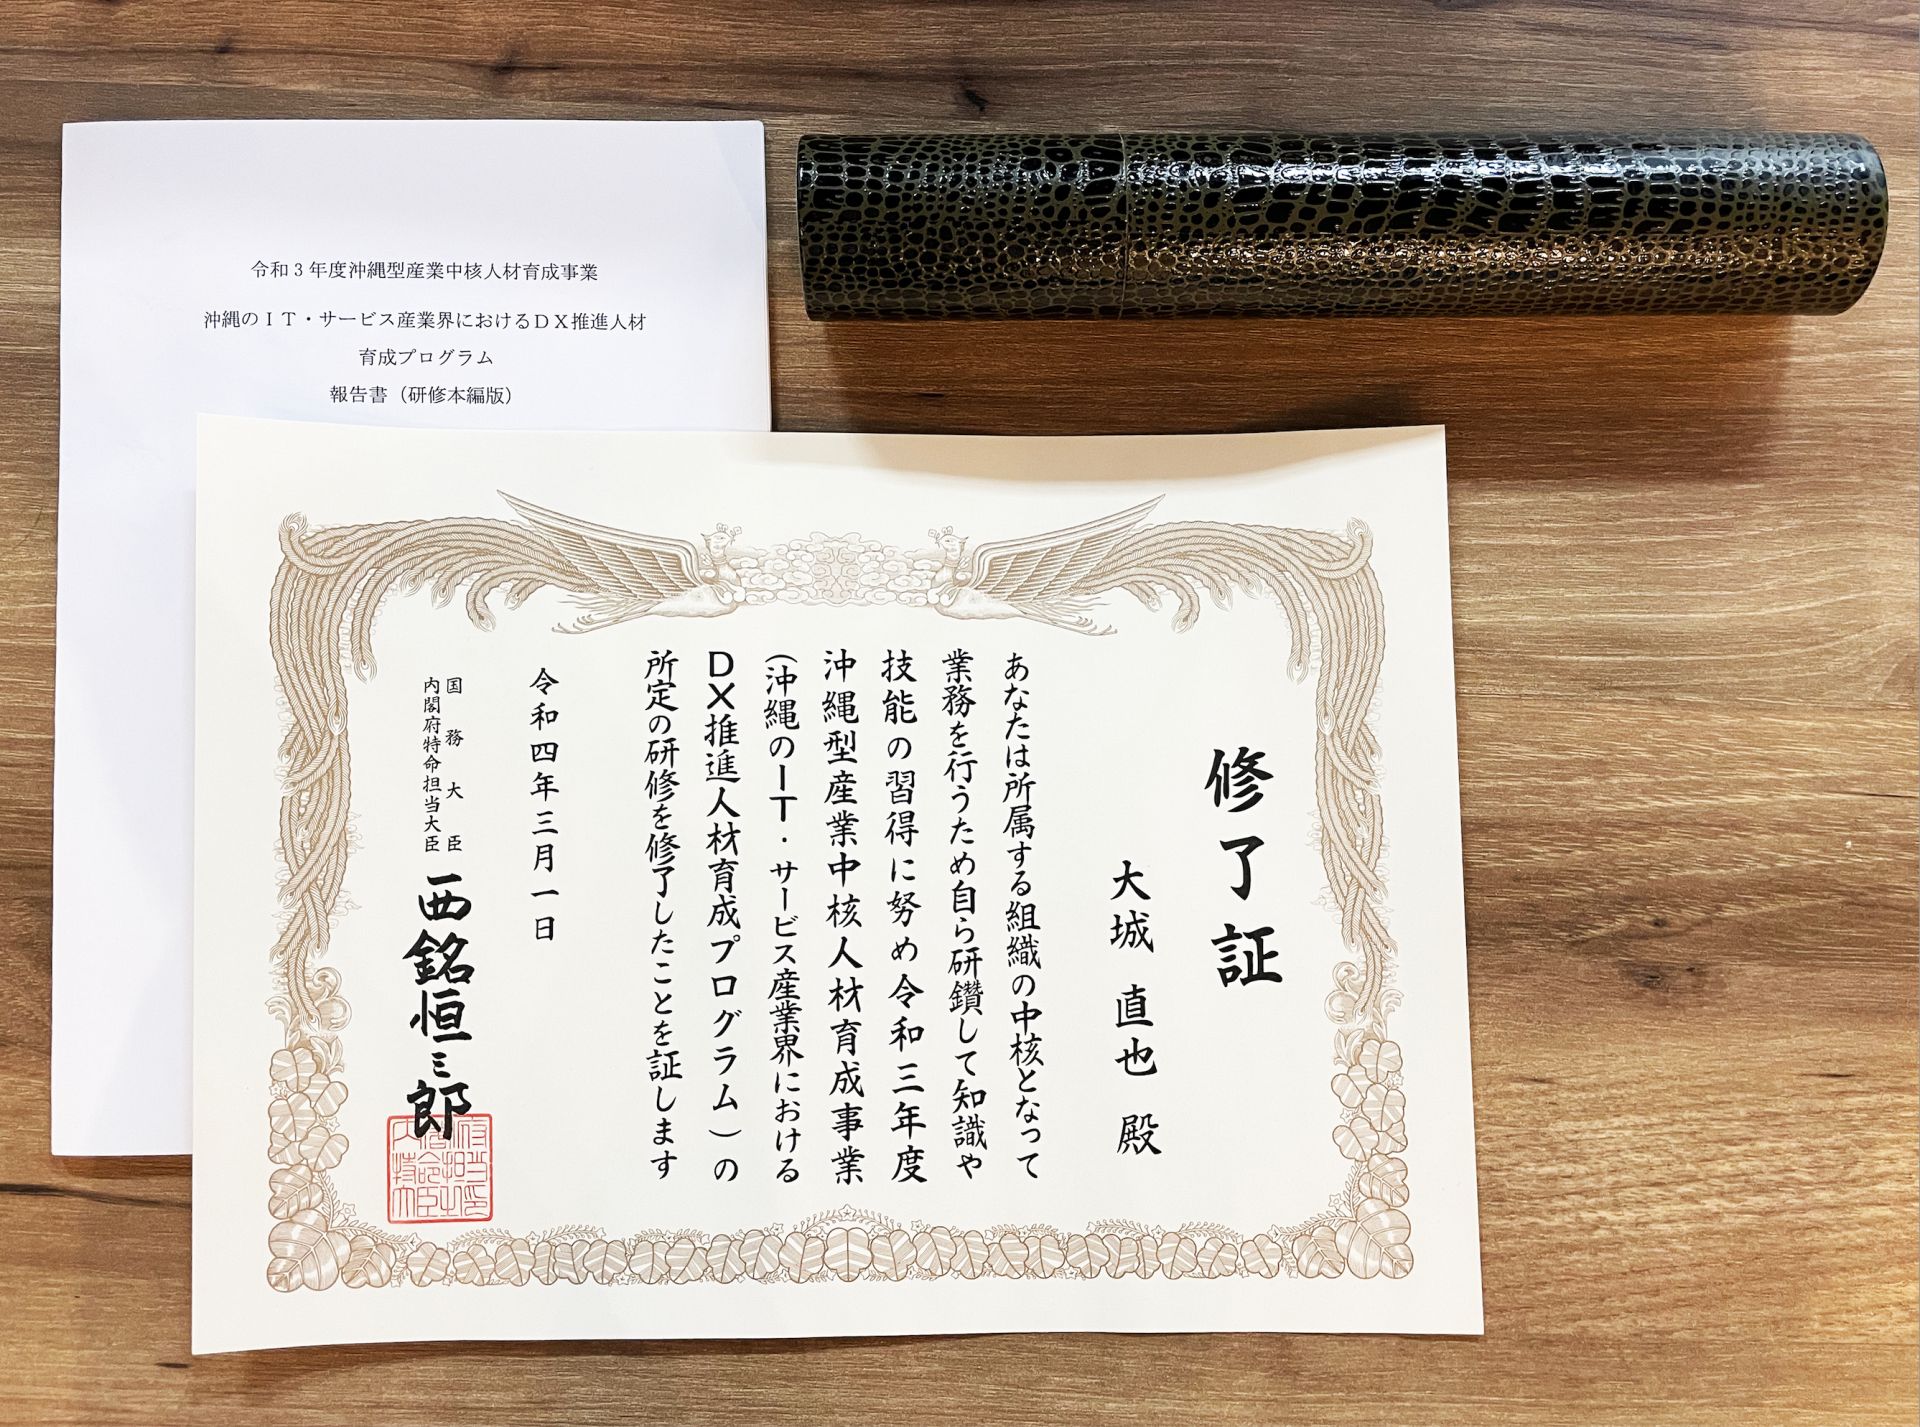 令和３年度沖縄型産業中核人材育成事業
沖縄のＩＴ・サービス産業界におけるＤＸ推進人材
育成プログラム
報告書（研修本編版）
修了証
大城 直也 殿
あなたは所属する組織の中核となって
業務を行うため自ら研鑽して知識や
技能の習得に努め令和三年度
沖縄型産業中核人材育成事業
（沖縄のＩＴ・サービス産業界における
ＤＸ推進人材育成プログラム）の
所定の研修を修了したことを証します
令和四年三月一日
国務大臣
内閣府特命担当大臣
西銘恒三郎